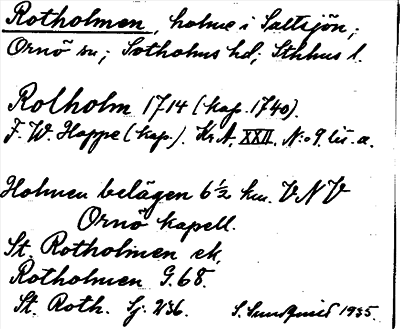 Rotholmen, holme i Saltsjön;
Ornö sn; Sotholms hd; Sthlms l.
Rolholm 1714 (kop. 1740).
F. W. Hoppe (kop.). Kr A. XXII. N:o 9 lit. a.
Holmen belägen 6½ km. VNV
Ornö kapell.
St. Rotholmen ek.
Rotholmen G. 68.
St. Roth. Lj. 236. 1935.